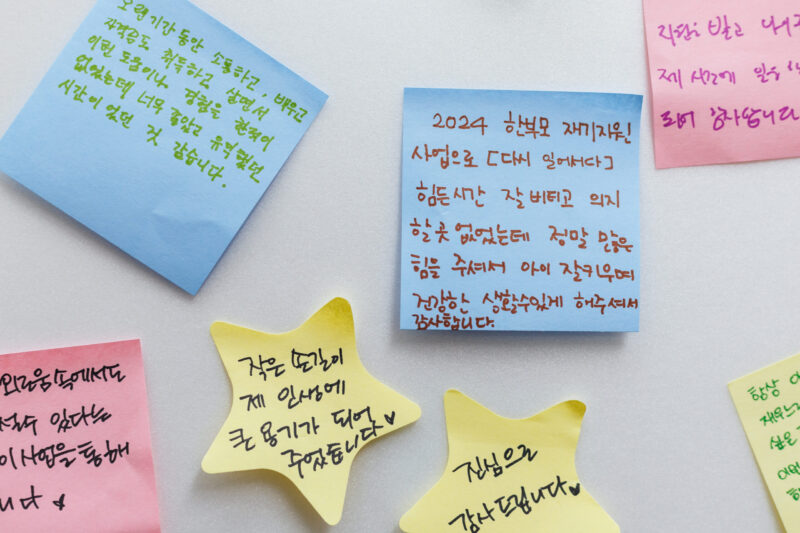 오랜 기간 동안 소통하고, 배우고
자격증도 취득하고 살면서
이런 도움이나 경험을 한적이
없었는데 너무 좋았고 유익했던
시간이 었던 것 같습니다.
2024 한부모 재기지원
사업으로 [다시 일어서다]
힘든시간 잘 버티고 의지
할 곳 없었는데 정말 많은
힘을 주셔서 아이 잘키우며
건강한 생활할수있게 해주셔서
감사합니다.
제 시간에
되어 감사합니다
외로움 속에서도
있다는
이 사업을 통해
니다 ♥
작은 손길이
제 인생에
큰 용기가 되어
주었습니다 ♥
진심으로
감사드립니다 ♥
항상